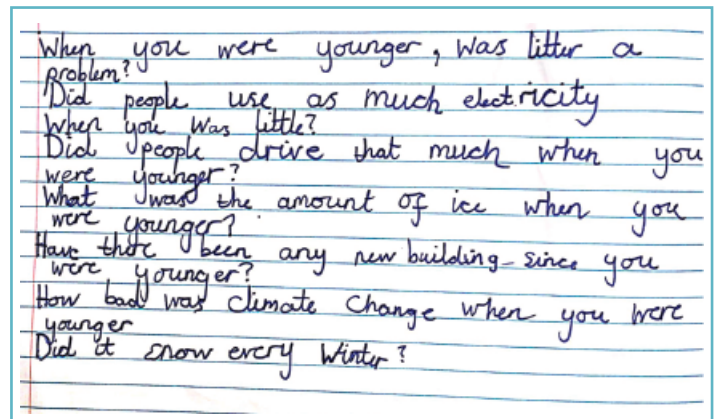 When you were younger, was litter a
problem?
Did people use as much electricity
when you was little?
Did people drive that much when you
were younger?
What was the amount of ice when you
were younger?
Have there been any new building since you
were younger?
How bad was climate change when you were
younger
Did it snow every winter?